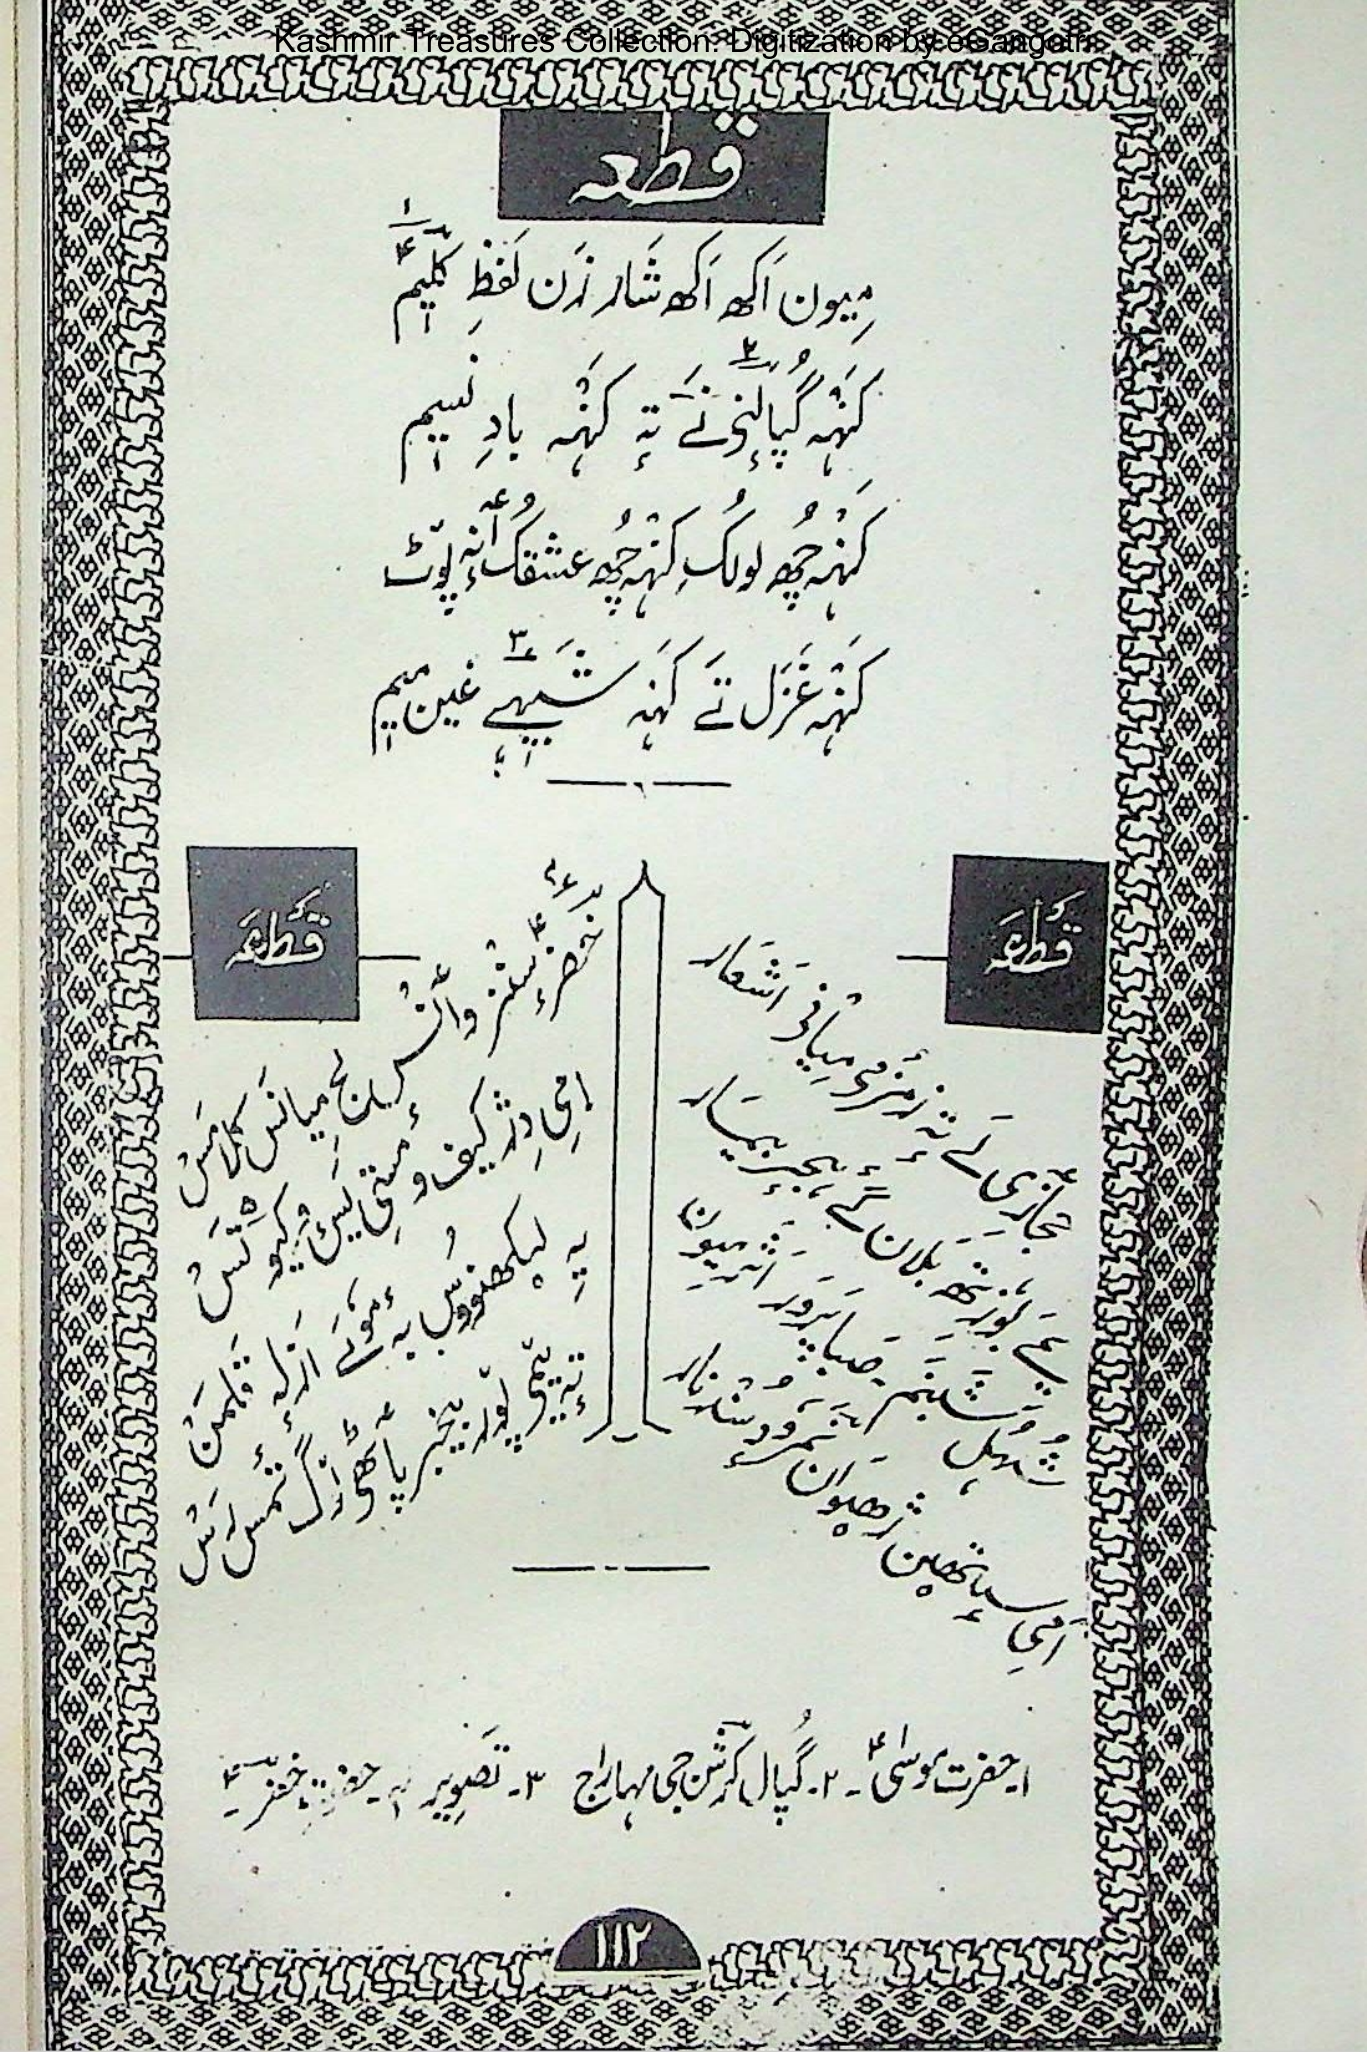 Kashmir Treasures Collection. Digitization by eGangotri
قطعہ
میون اَکھ اَکھ شار زَن لَفظِ کلیٖم ۱
کَنٛہہ گُپالنۍ نَے تہٕ کَنٛہہ بادِ نسیٖم
کَنٛہہ چُھ لولُک کَنٛہہ چُھ عشقُک أنہٕ پوٚٹ
کَنٛہہ غَزَل تَے کَنٛہہ شَبیٖہے غین میٖم
قَطعَہ
مَجازی لَے تہٕ رَمزٕ میانۍ اَشعار
یِمَے بوٗزِتھ بَلان گَے ہجرٕ بیمار
شُہُل شَبنَم صَبا پَروَر اَثَر میون
اَمی سٟتھین ژھیوان نَمروٗدٕ سُنٛد نار
قَطعَہ
خضرٕ سٕنٛز وأنٛس لٔج میانِس کَلامَس
اِمۍ دِژ کیف و مستی
یہِ لیکھنووُس بہٕ مولَے اَزلہٕ قلمن
تہٕ تِمی پوٚر بیٚخبر پاٹھۍ
۱۔ حضرت موسیٰؑ ۔ ۲۔ گُپال کرشن جی مہاراج ۳۔ تصویر ۴۔ حضرت خضرؑ
۱۱۲